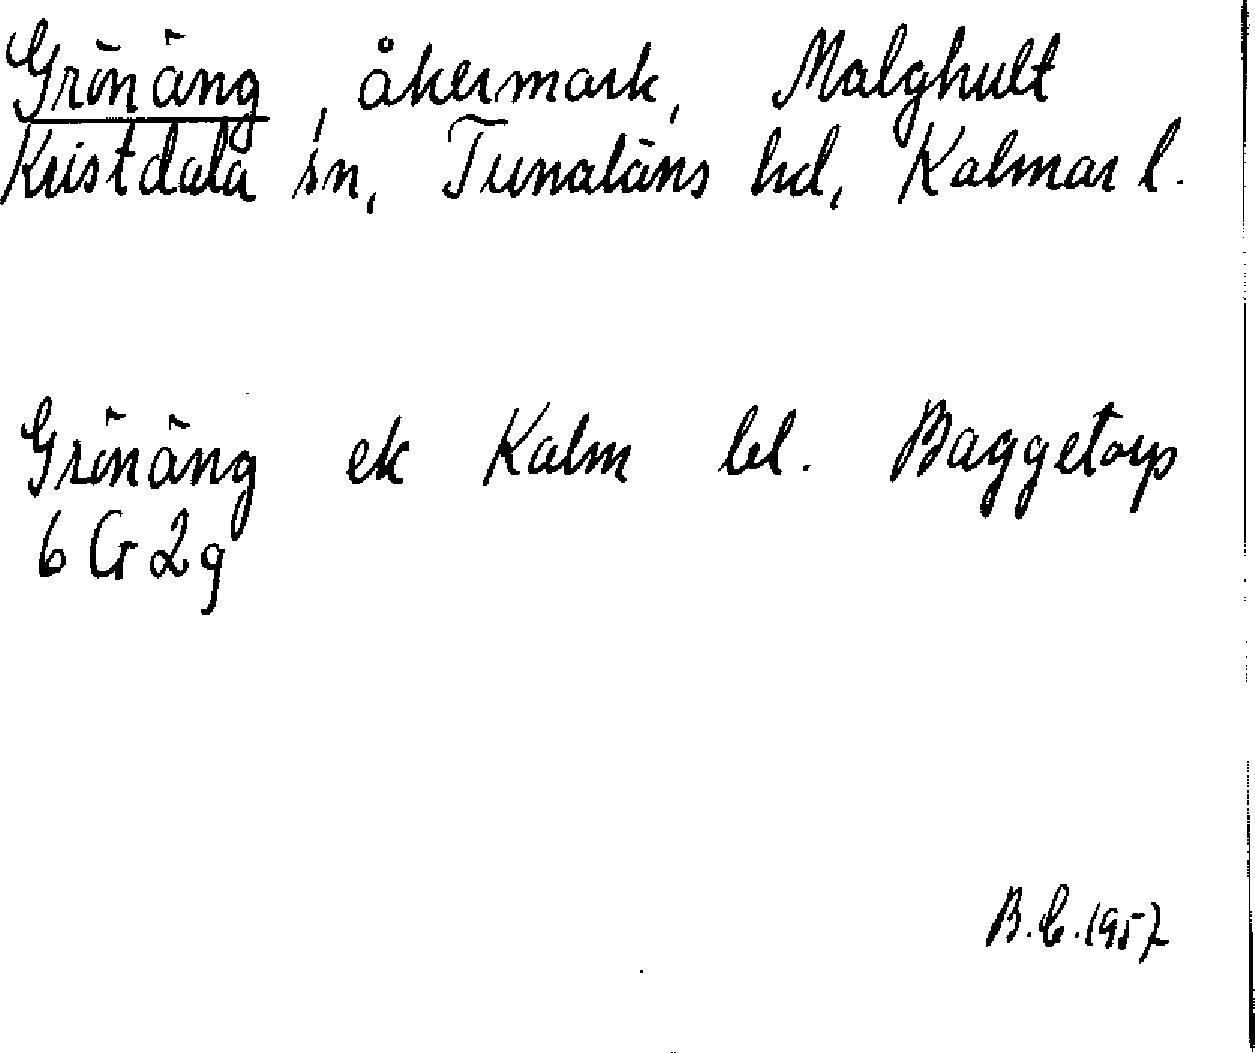 Grönäng, åkermark, Malghult
Kristdala sn, Tunaläns hd, Kalmar l.
Grönäng ek Kalm bl. Baggetorp
6 G 2 g
B.C. 1957